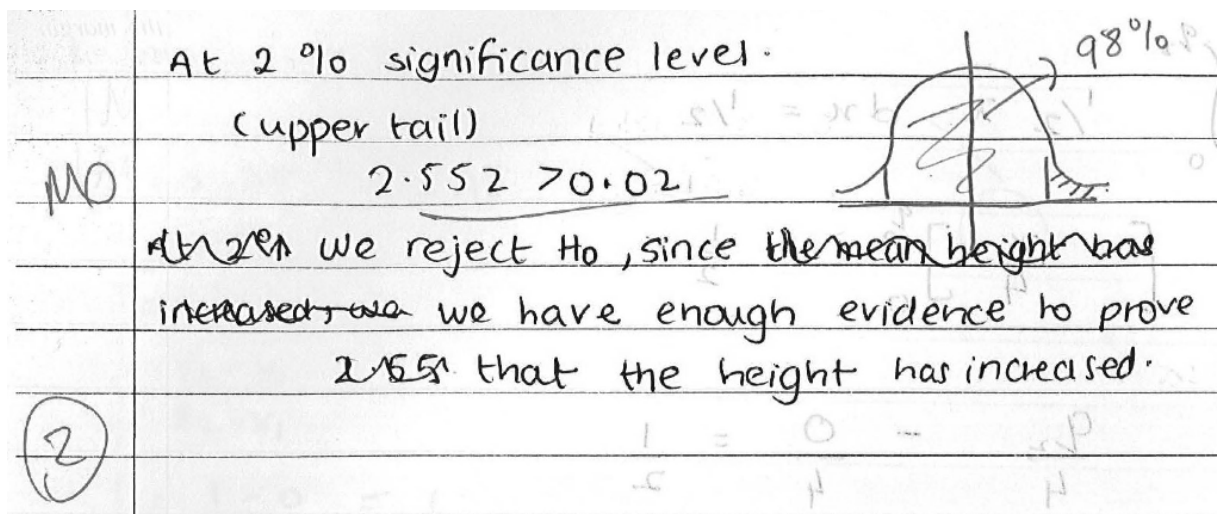 At 2% significance level.
98%
(upper tail)
M0 2.552 > 0.02
we reject H0, since the mean height has
increased, we have enough evidence to prove
that the height has increased.
2